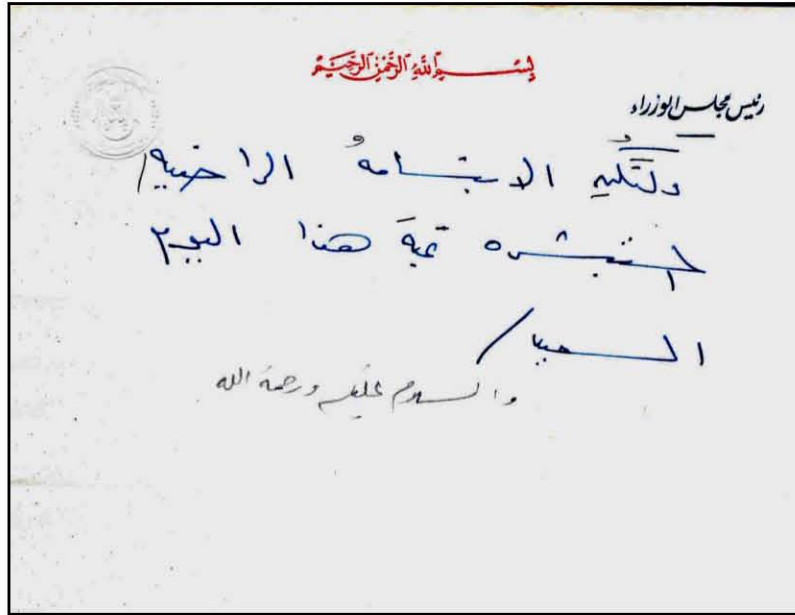 بسم الله الرحمن الرحيم
رئيس مجلس الوزراء
ولتكن الابتسامةُ الراضية /
المستبشره تحيةَ هذا اليوم
السعيد /
والسلام عليكم ورحمة الله